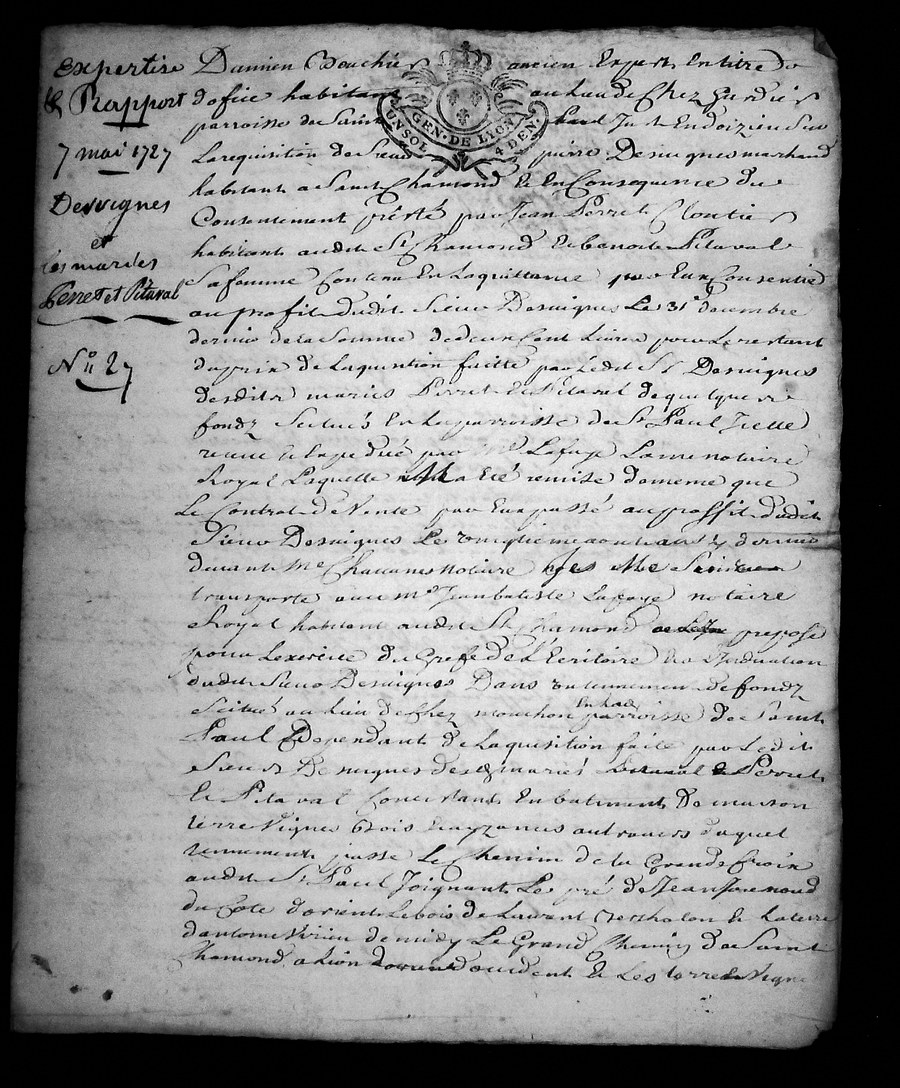 Expertise
& Rapport
7 mai 1727
Desvignes
et
les mariés
Perret et Pitaval
N° 27
GEN. DE LION
UN SOL 4 DEN.
Damien ancien Expert En titre
doffice habitant au lieu de Chez
parroisse de Saint Paul En doizieu Sur
La requisition de Sieur pierre Desvignes marchand
habitant a Saint Chamond & En Consequence du
Consentement presté par Jean Perret Cloutier
habitant audit St Chamond & benoite Pitaval
Sa femme Contenu En La quittance par Eux Consentie
au proffit dudit Sieur Desvignes Le 31e decembre
dernier de la Somme de deux Cent Livres pour Le restant
du prix de Laquisition faitte par Ledit Sr Desvignes
desdits mariés Perret & Pitaval de quelques
fondz Scitués En La parroisse de St Paul
receue & Expediée par Me Lafaye notaire
Royal Laquelle a été remise de meme que
Le Contrat de Vente par Eux passé au proffit dudit
Sieur Desvignes Le dernier
devant Me Chavanes notaire Je Me Suis
transporté avec me Jean batiste Lafaye notaire
Royal habitant audit St Chamond preposé
pour Lexercice du Grefe de L'Ecritoire
dudit Sieur Desvignes Dans un tennement de fondz
Scitué au lieu de Chez mouchon parroisse de Saint
Paul Dependant de Laquisition faite par Ledit
Sieur Desvignes desdits mariés Perret
& Pitaval Concistant En batiment De maison
terre Vignes & bois au travers duquel
tennement passe Le Chemin de la Grand Croix
audit St Paul Joignant Le pré de Jean
du Coté dorient Le bois de Laurant & La terre
dantoine de midy Le Grand Chemin de Saint
Chamond a Lion doccident & Les terre & Vigne